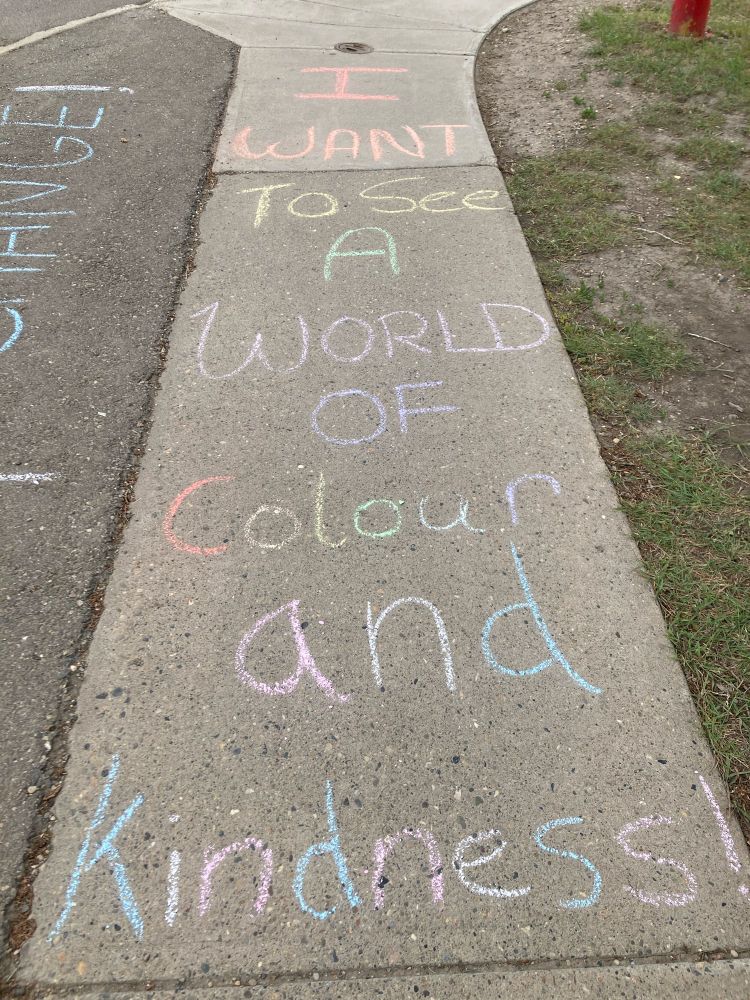 I
WANT
To See
A
WORLD
OF
Colour
and
Kindness!